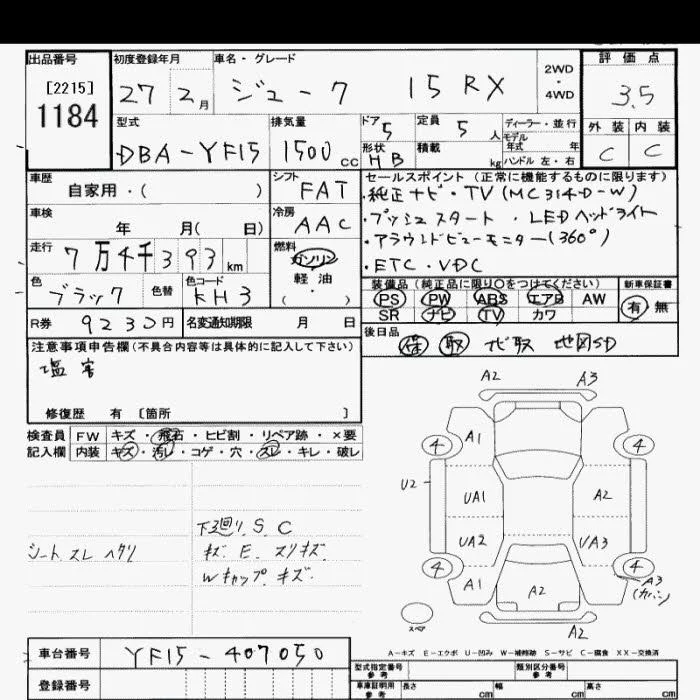 出品番号
[2215]
1184
初度登録年月
27 2月
車名・グレード
ジューク 15RX
2WD
・
4WD
評価点
3.5
外装 内装
C C
型式
DBA-YF15
排気量
1500cc
ドア
5
定員
5人
ディーラー・並行
形状
HB
積載
kg
モデル年式 年
ハンドル 左・右
車歴
自家用・( )
シフト
FAT
車検
年 月( 日)
冷房
AAC
走行
7万4千393km
燃料
ガソリン
軽油
色
ブラック
色替
色コード
KH3
( )
R券 9230円
名変通知期限 月 日
セールスポイント(正常に機能するものに限ります)
・純正ナビ・TV(MC314D-W)
・プッシュスタート ・LEDヘッドライト
・アラウンドビューモニター(360°)
・ETC・VDC
装備品(純正品に限り○をつけてください)
新車保証書
PS PW ABS エアB AW
SR ナビ TV カワ
有 無
後日品
保 取 ナビ取 地図SD
注意事項申告欄(不具合内容等は具体的に記入して下さい)
塩害
修復歴 有 〔箇所 〕
検査員
記入欄
FW キズ・飛石・ヒビ割・リペア跡・×要
内装 キズ・汚レ・コゲ・穴・スレ・キレ・破レ
シートスレ ヘタリ
下廻り.S.C
キズ.E.スリキズ.
Wキャップキズ.
A2 A3
4 A1 4
U2
UA1 A2
UA2 UA3
4 A1 A2 4
A3
(カバー)
A2
スペア
A-キズ E-エクボ U-凹み W-補修跡 S-サビ C-腐食 XX-交換済
車台番号
YF15-407050
登録番号
型式指定番号
参考
類別区分番号
参考
車庫証明用
参考
長さ cm
幅 cm
高さ cm